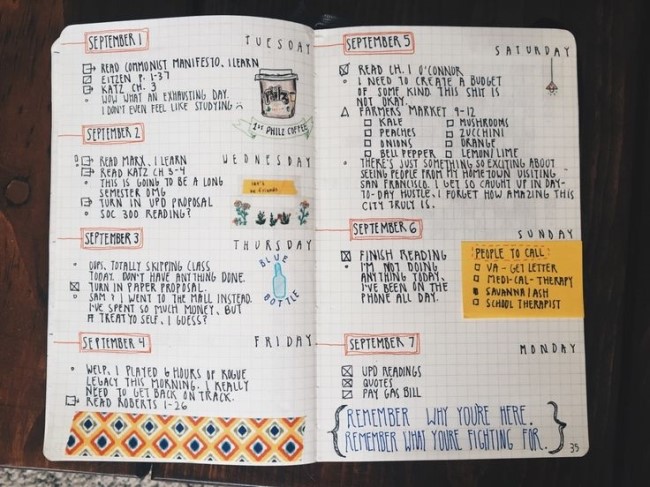 SEPTEMBER 1
TUESDAY
READ COMMUNIST MANIFESTO, ILEARN
EITZEN P. 1-37
KATZ CH. 3
WOW WHAT AN EXHAUSTING DAY.
I DON'T EVEN FEEL LIKE STUDYING
1ST PHILZ COFFEE
SEPTEMBER 2
WEDNESDAY
READ MARX, ILEARN
READ KATZ CH 3-4
THIS IS GOING TO BE A LONG
SEMESTER OMG
TURN IN UPD PROPOSAL
SOC 300 READING?
let's
be friends
SEPTEMBER 3
THURSDAY
OOPS. TOTALLY SKIPPING CLASS
TODAY. DON'T HAVE ANYTHING DONE.
TURN IN PAPER PROPOSAL.
SAM & I WENT TO THE MALL INSTEAD.
I'VE SPENT SO MUCH MONEY. BUT
# TREAT YO SELF, I GUESS?
BLUE
BOTTLE
SEPTEMBER 4
FRIDAY
WELP, I PLAYED 6 HOURS OF ROGUE
LEGACY THIS MORNING. I REALLY
NEED TO GET BACK ON TRACK.
READ ROBERTS 1-26
SEPTEMBER 5
SATURDAY
READ CH. 1 O'CONNOR
I NEED TO CREATE A BUDGET
OF SOME KIND. THIS SHIT IS
NOT OKAY.
FARMERS MARKET 9-12
KALE
MUSHROOMS
PEACHES
ZUCCHINI
ONIONS
ORANGE
BELL PEPPER
LEMON/LIME
THERE'S JUST SOMETHING SO EXCITING ABOUT
SEEING PEOPLE FROM MY HOMETOWN VISITING
SAN FRANCISCO. I GET SO CAUGHT UP IN DAY-
TO-DAY HUSTLE, I FORGET HOW AMAZING THIS
CITY TRULY IS.
SEPTEMBER 6
SUNDAY
FINISH READING
I'M NOT DOING
ANYTHING TODAY.
I'VE BEEN ON THE
PHONE ALL DAY.
PEOPLE TO CALL
VA - GET LETTER
MEDI-CAL - THERAPY
SAVANNA/ASH
SCHOOL THERAPIST
SEPTEMBER 7
MONDAY
UPD READINGS
QUOTES
PAY GAS BILL
REMEMBER WHY YOU'RE HERE.
REMEMBER WHAT YOU'RE FIGHTING FOR.
35